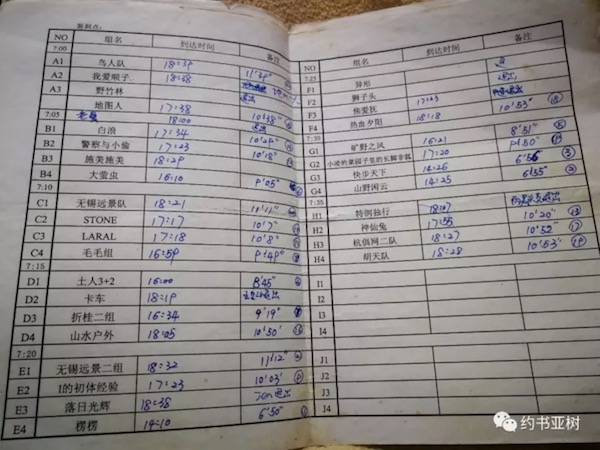 签到点:
NO 组名 到达时间 备注
7:00
A1 鸟人队 18:39 11'39"
A2 我爱顺子 18:38
A3 野竹林
地图人 17:38 10'38"
7:05 18:00 退出
B1 白浪 17:34 10'29"
B2 警察与小偷 17:23 10'18"
B3 施美施美 18:29
B4 大萤虫 16:10 9'05"
7:10
C1 无锡远景队 18:21 11'11"
C2 STONE 17:17 10'7"
C3 LARAL 17:18 10'8"
C4 毛毛组 16:59 9'49"
7:15
D1 土人3+2 16:00 8'45"
D2 卡车 18:19
D3 折桂二组 16:34 9'19"
D4 山水户外 18:05 10'50"
7:20
E1 无锡远景二组 18:32 11'12"
E2 1的初体经验 17:23 10'03"
E3 落日光辉 18:38
E4 楞楞 14:10 6'50"
NO 组名 到达时间 备注
7:25
F1 异形
F2 狮子头 退出
F3 焦爱抚 17:23
F4 热血夕阳 18:18 10'53"
7:30
G1 旷野之风 16:21 8'51"
G2 小凌的菜园子里的长脚非狐 17:20 9'50"
G3 快步天下 14:26 6'56"
G4 山野闲云 14:25 6'55"
7:35
H1 特例独行 18:07
H2 神仙兔 17:55 10'20"
H3 杭俱网二队 18:27 10'52"
H4 胡天队 18:28 10'53"
I1
I2
I3
I4
J1
J2
J3
J4
约书亚树